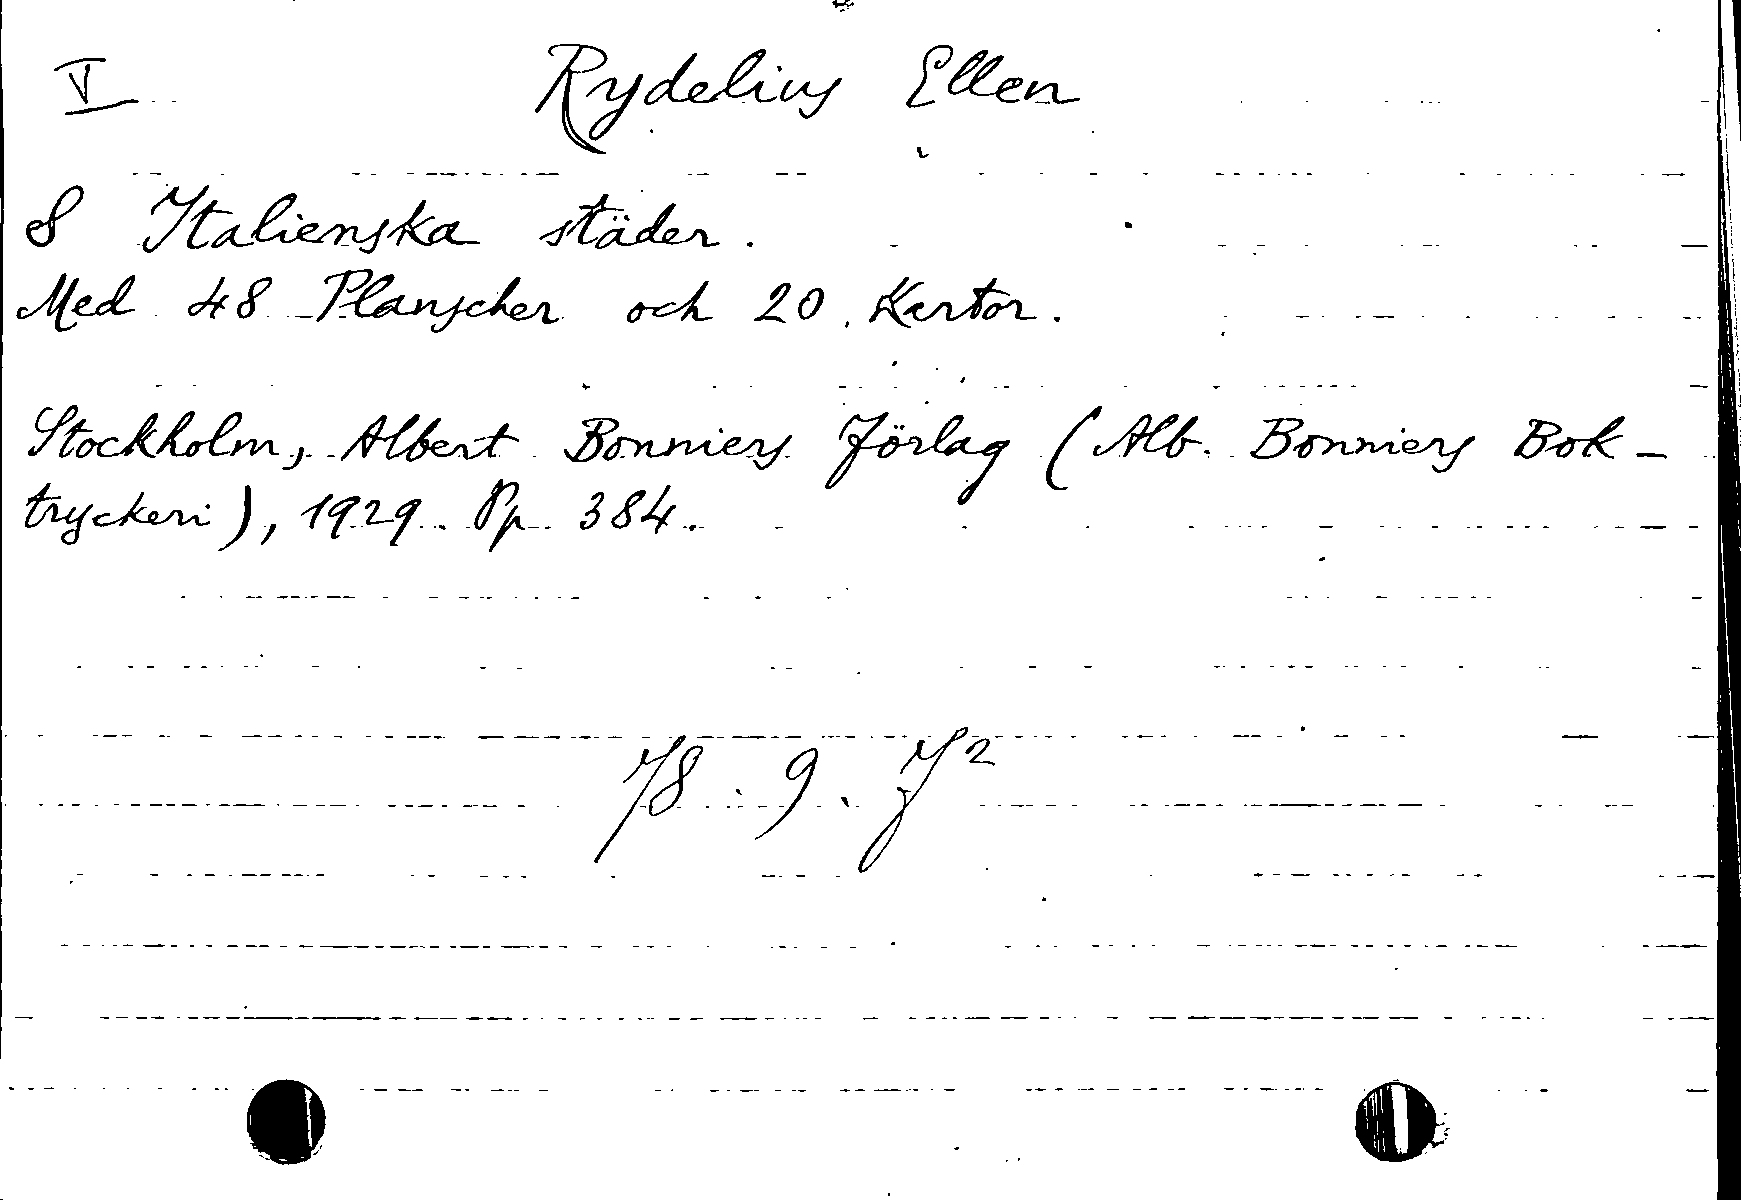 V Rydelius Ellen
8 Italienska städer.
Med 48 Planscher och 20 Kartor.
Stockholm, Albert Bonniers Förlag (Alb. Bonniers Bok-
tryckeri), 1929. Pp. 384.
78.9.J²